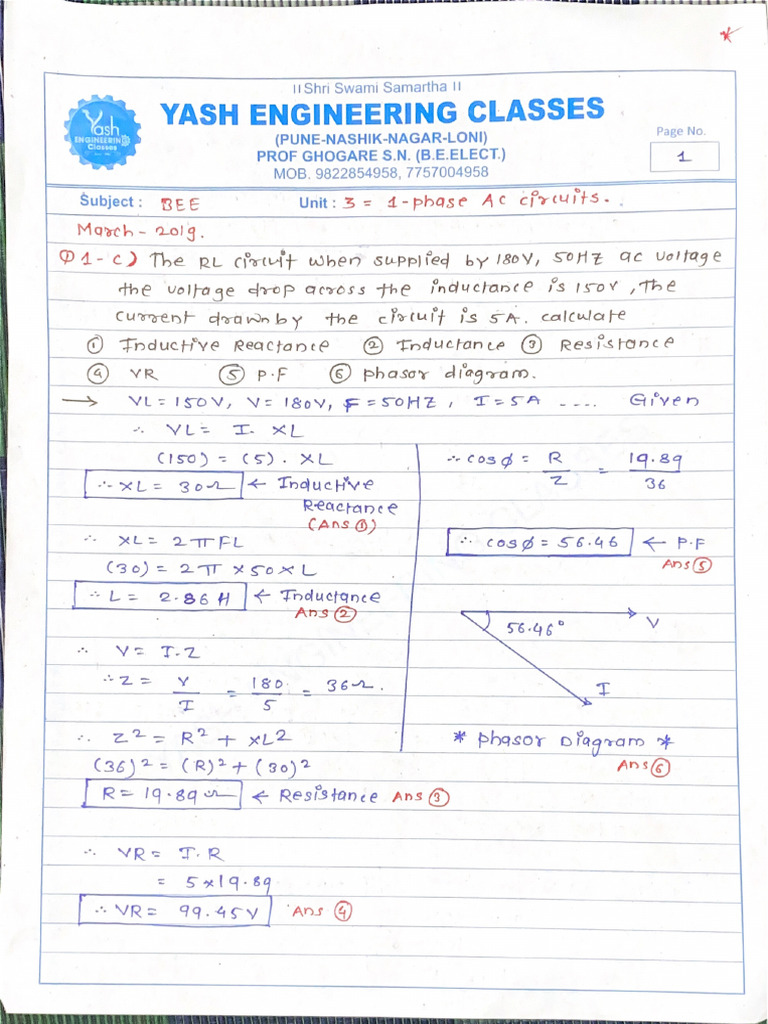 ॥ Shri Swami Samartha ॥
YASH ENGINEERING CLASSES
(PUNE-NASHIK-NAGAR-LONI)
PROF GHOGARE S.N. (B.E.ELECT.)
MOB. 9822854958, 7757004958
Yash
ENGINEERING
Classes
Page No.
1
Subject : BEE
Unit : 3 = 1-phase AC circuits.
March - 2019.
Q1-c) The RL circuit when supplied by 180V, 50HZ ac voltage
the voltage drop across the inductance is 150V, The
current drawn by the circuit is 5A. calculate
① Inductive Reactance ② Inductance ③ Resistance
④ VR ⑤ P.F ⑥ phasor diagram.
→ VL = 150V, V = 180V, F = 50HZ, I = 5A .... Given
∴ VL = I. XL
(150) = (5). XL
∴ XL = 30Ω ← Inductive
Reactance
(Ans ①)
∴ XL = 2πFL
(30) = 2π × 50 × L
∴ L = 2.86 H ← Inductance
Ans ②
∴ V = I.Z
∴ Z = V/I = 180/5 = 36Ω.
∴ Z² = R² + XL²
(36)² = (R)² + (30)²
R = 19.89Ω ← Resistance Ans ③
∴ VR = I.R
= 5×19.89
∴ VR = 99.45V Ans ④
∴ cosϕ = R/Z = 19.89/36
∴ cosϕ = 56.46 ← P.F
Ans ⑤
V
56.46°
I
* Phasor Diagram *
Ans ⑥